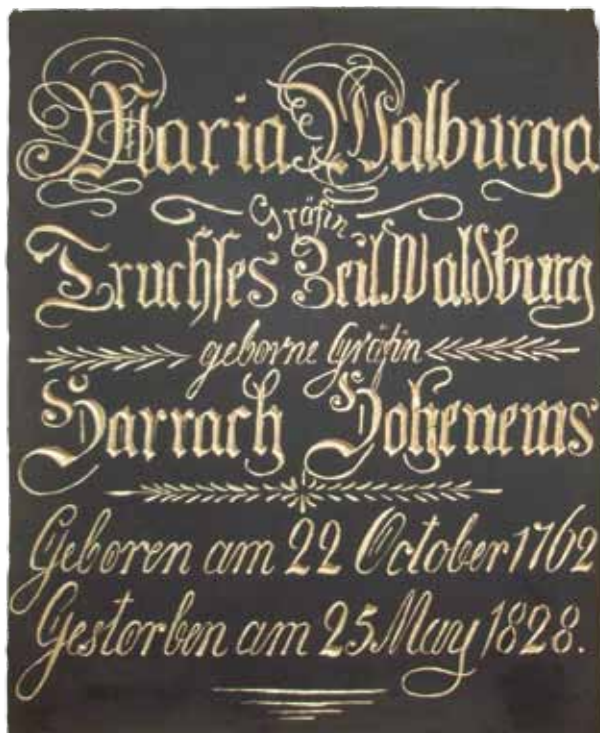 Maria Walburga
Gräfin
Truchses Zeil Waldburg
geborne Gräfin
Harrach Hohenems
Geboren am 22 October 1762
Gestorben am 25 May 1828.